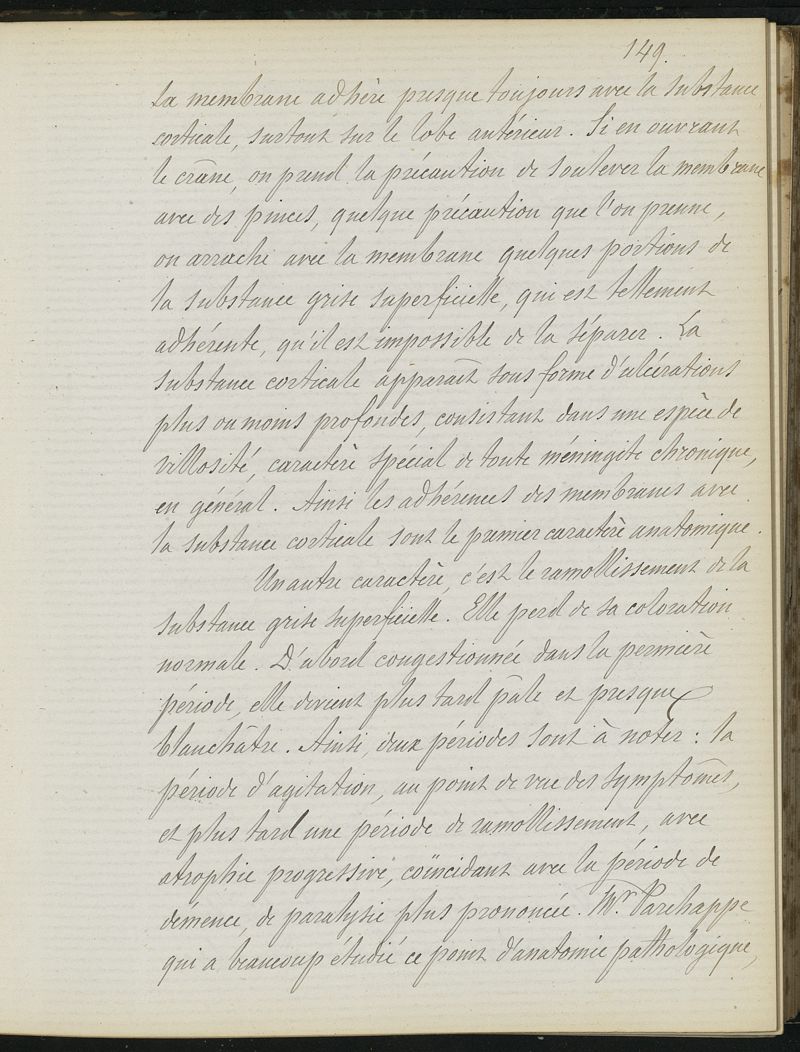 149.
La membrane adhère presque toujours avec la substance
corticale, surtout sur le lobe antérieur. Si en ouvrant
le crâne, on prend la précaution de soulever la membrane
avec des pinces, quelque précaution que l'on prenne,
on arrache avec la membrane quelques portions de
la substance grise superficielle, qui est tellement
adhérente, qu'il est impossible de la séparer. La
substance corticale apparaît sous forme d'ulcérations
plus ou moins profondes, consistant dans une espèce de
villosité, caractère spécial de toute méningite chronique,
en général. Ainsi les adhérences des membranes avec
la substance corticale sont le premier caractère anatomique.
Un autre caractère, c'est le ramollissement de la
substance grise superficielle. Elle perd de sa coloration
normale. D'abord congestionnée dans la permière
période, elle devient plus tard pâle et presque
blanchâtre. Ainsi, deux périodes sont à noter : la
période d'agitation, au point de vue des symptômes,
et plus tard une période de ramollissement, avec
atrophie progressive, coïncidant avec la période de
démence, de paralysie plus prononcée. Mr. Parchappe
qui a beaucoup étudié ce point d'anatomie pathologique,